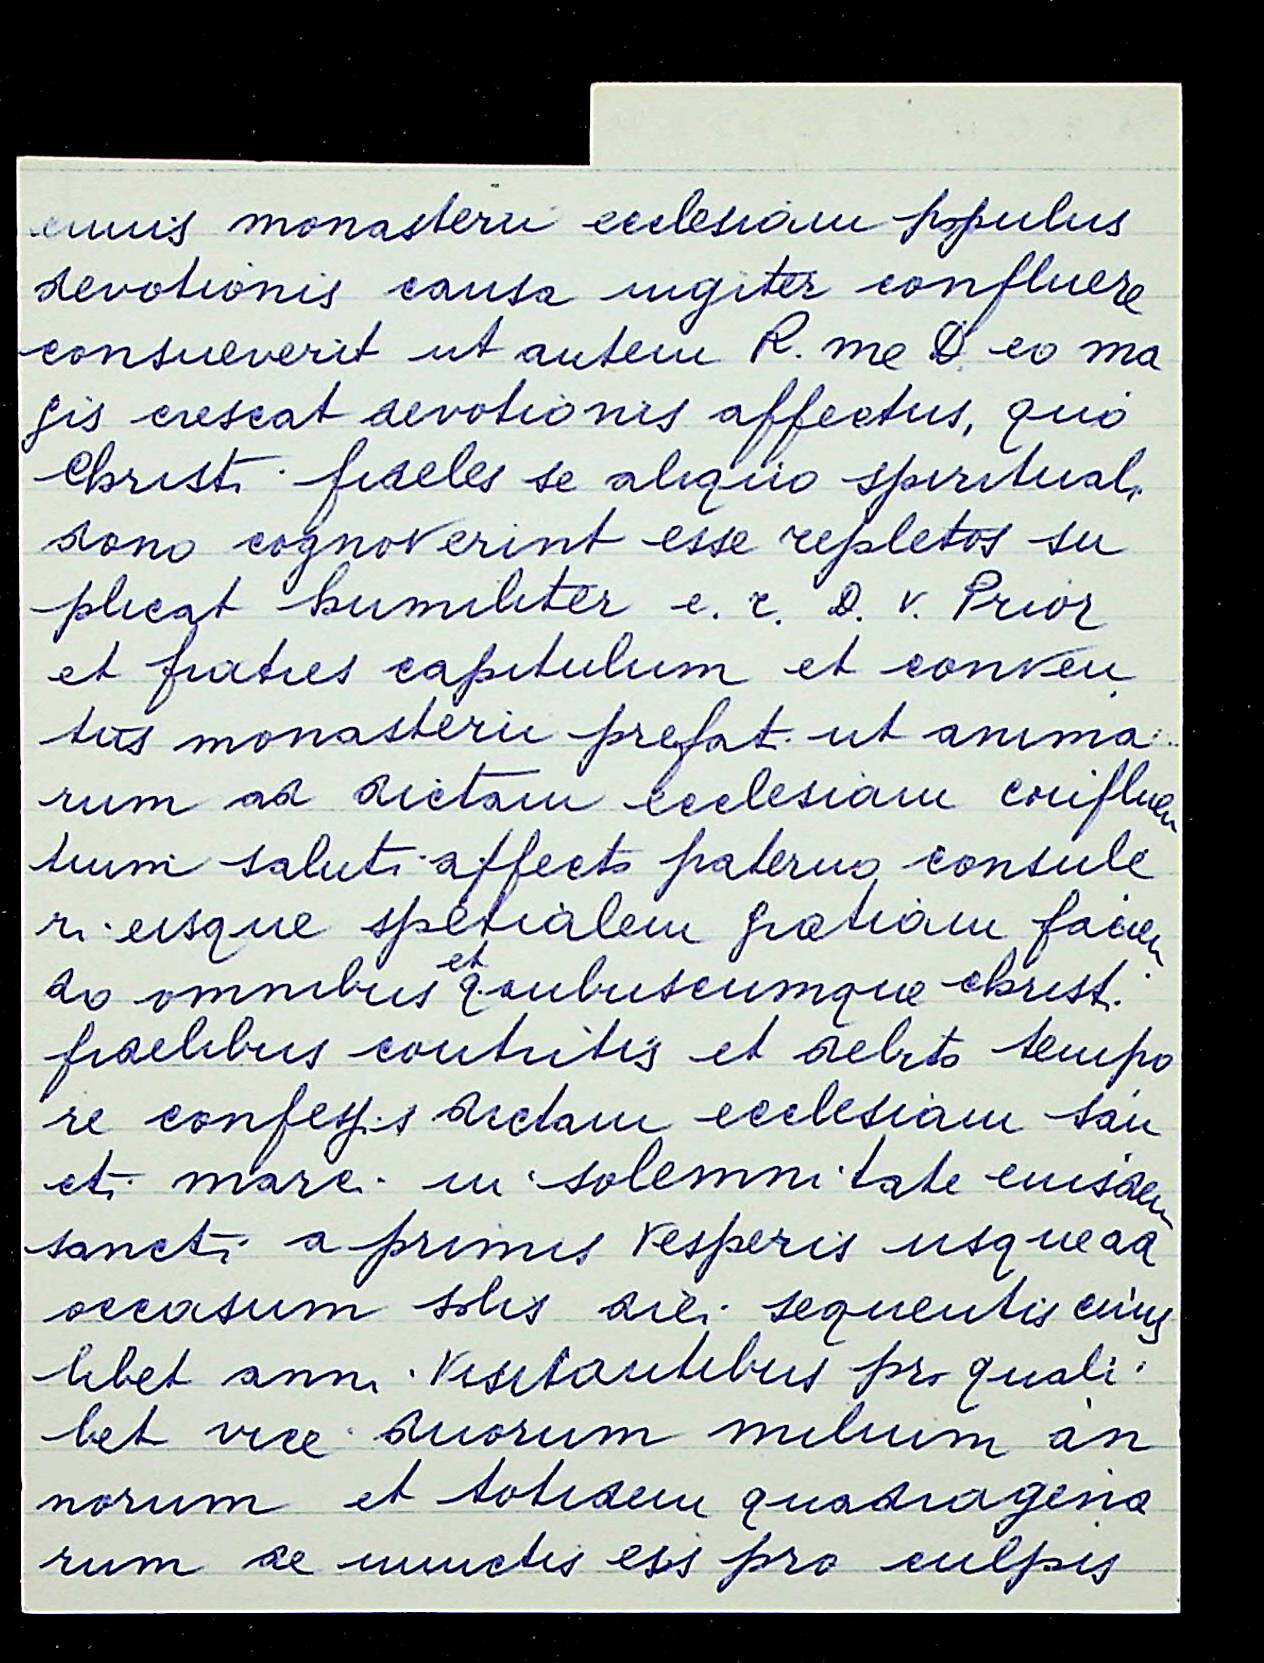 cuius monasterii ecclesiam populus
devotionis causa iugiter confluere
consueverit ut autem R. me D. eo ma
gis crescat devotionis affectus, quo
Christi fideles se aliquo spirituali
dono cognoverint esse repletos su
plicat humiliter e. r. D. v. Prior
et fratres capitulum et conven
tus monasterii prefat. ut anima
rum ad dictam ecclesiam confluen
tium saluti affecto paterno consule
ri eisque spetialem gratiam facien
do omnibus et quibuscumque christi
fidelibus contritis et debito tempo
re confessis dictam ecclesiam san
cti marci in solemnitate eiusdem
sancti a primis Vesperis usque ad
occasum solis diei sequentis cuius
libet anni visitantibus pro quali
bet vice duorum milium an
norum et totidem quadragena
rum de iniunctis eis pro culpis